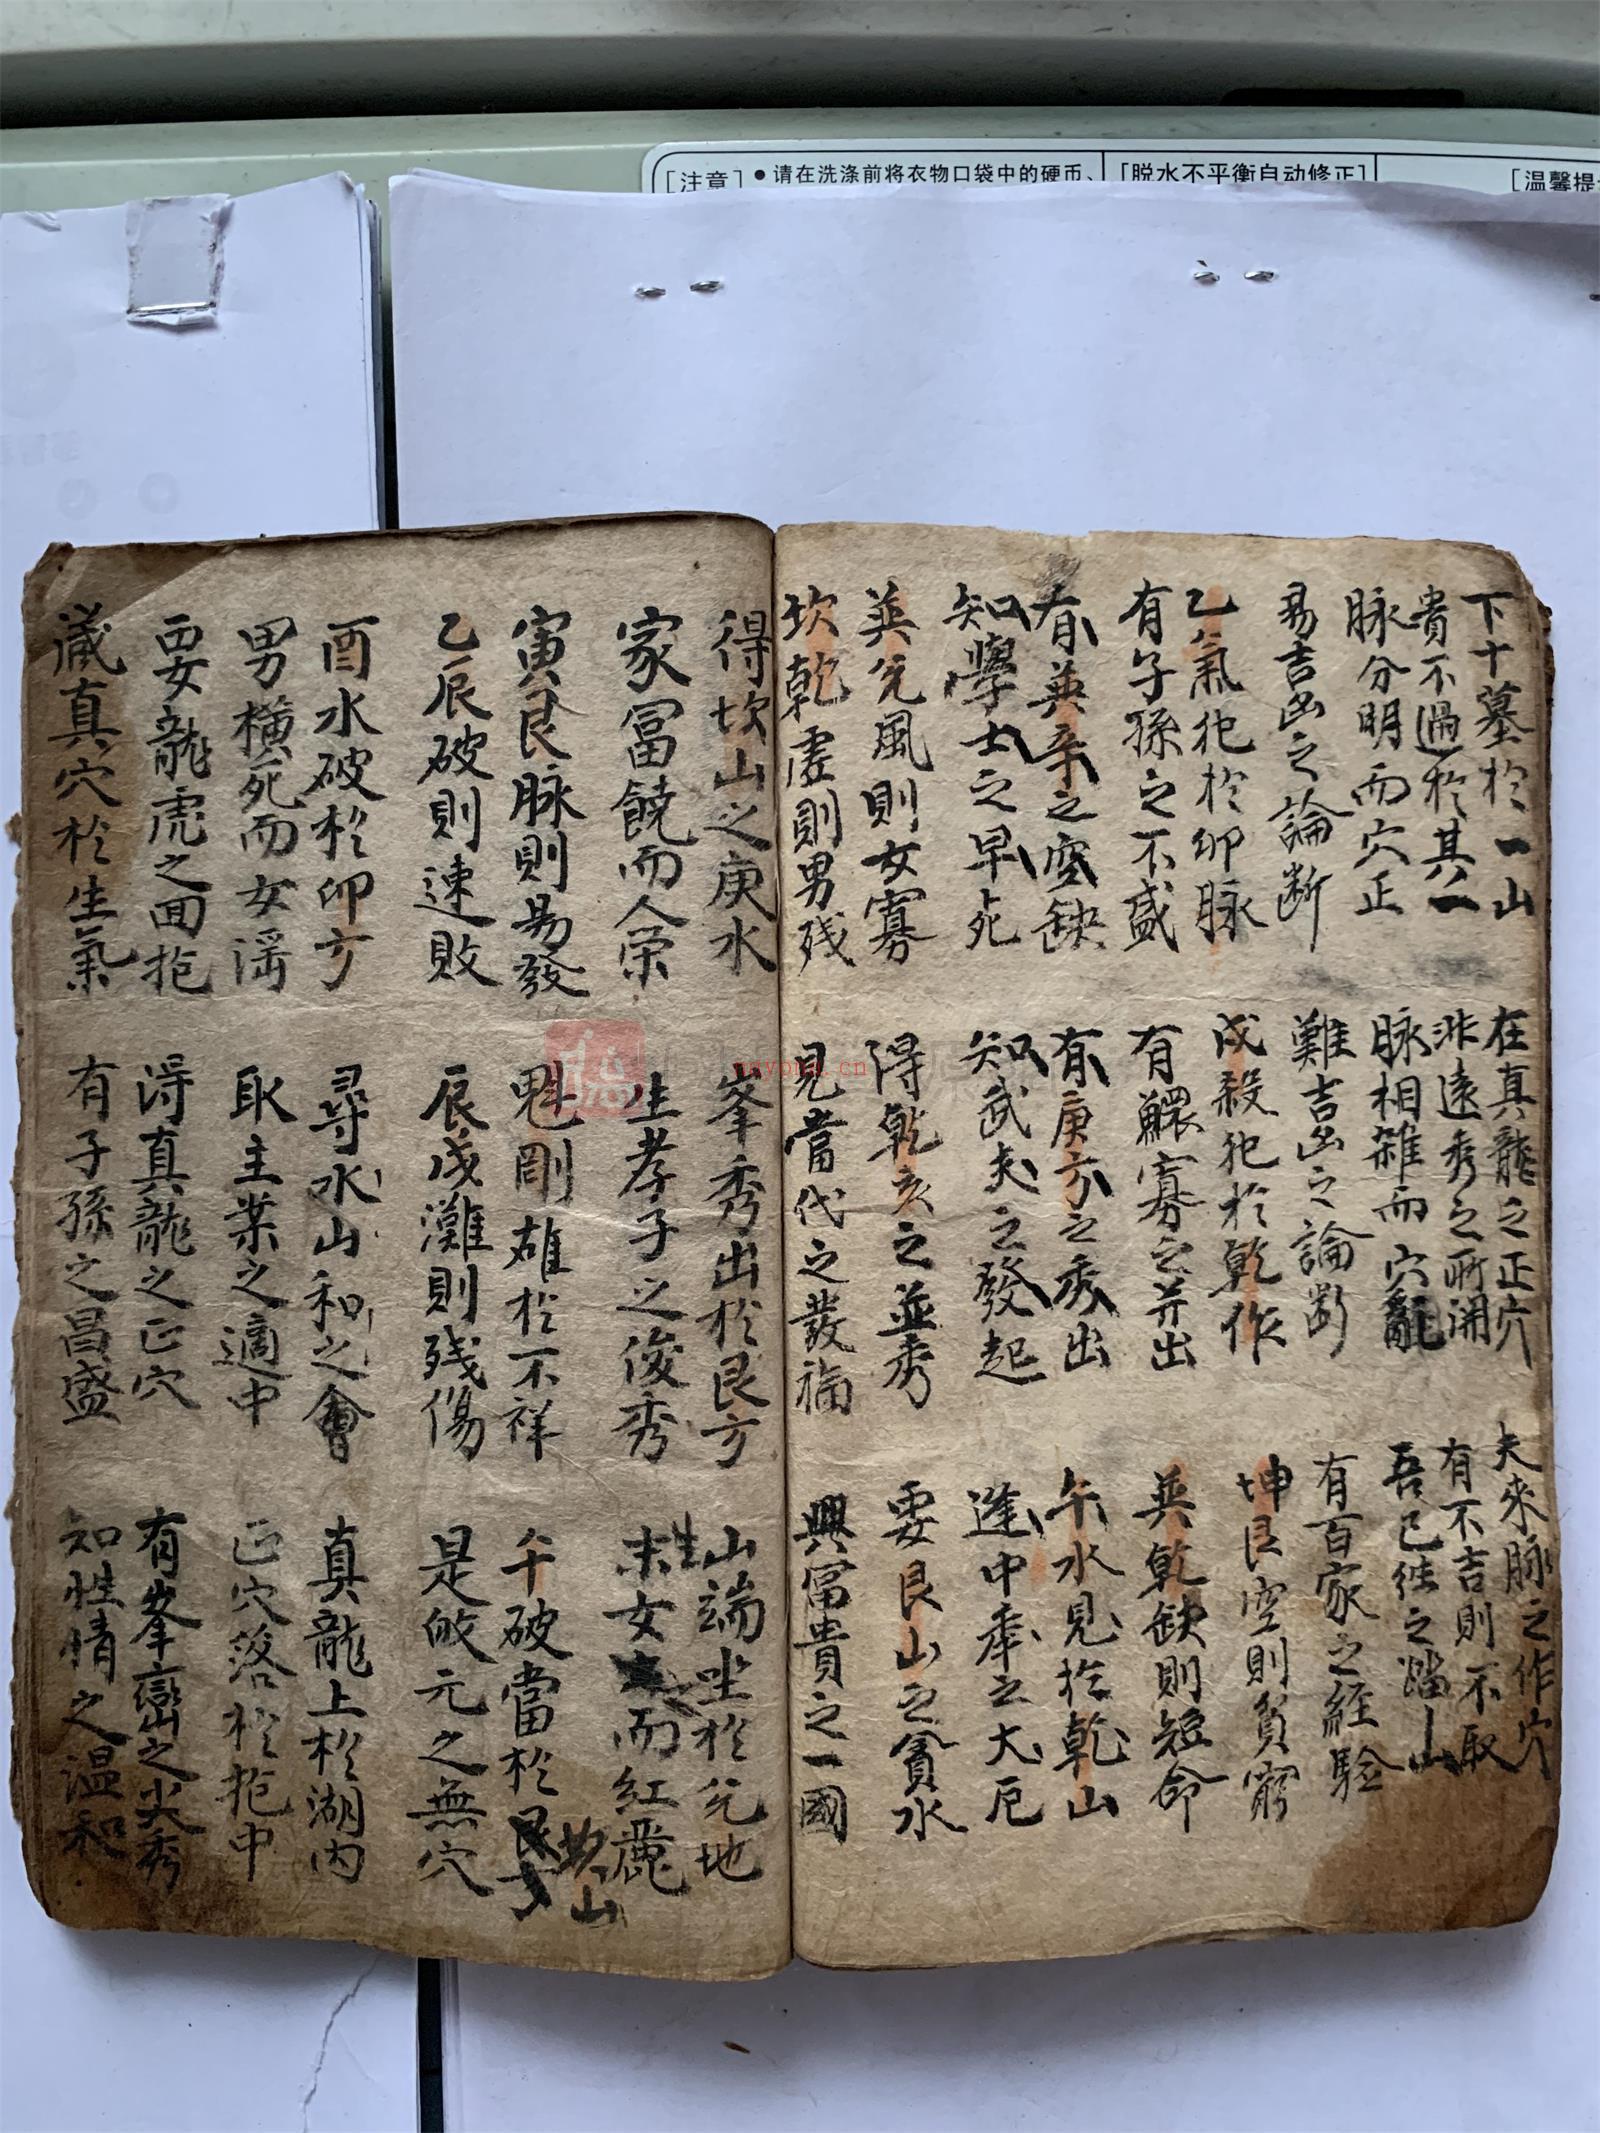 [注意] ●请在洗涤前将衣物口袋中的硬币、
[脱水不平衡自动修正]
[温馨提
下十墓於一山 在真龍之正穴 夫來脉之作穴
貴不過於其一 非遠秀之所開 有不吉則不取
脉分明而穴正 脉相雜而穴亂 吾已往之踏山
易吉凶之論断 難吉凶之論断 有百家之經驗
乙氣犯於卯脉 戌殺犯於乾作 坤艮空則貧窮
有子孫之不盛 有鰥寡之并出 巽乾缺則短命
有巽辛之空缺 有庚方之秀出 午水見於乾山
知學士之早死 知武夫之發起 逢中年之大厄
巽兌風則女寡 得乾亥之並秀 要艮山之賓水
坎乾虚則男残 見當代之發福 興富貴之一國
得坎山之庚水 峯秀出於艮方 山端坐於兌地
家富饒而人榮 生孝子之俊秀 生女而紅麗
寅艮脉則易發 魁剛雄於不祥 午破當於艮方 山
乙辰破則速敗 辰戌灘則残傷 是敀元之無穴
酉水破於卯方 尋水山和之會 真龍上於湖内
男橫死而女淫 取主業之適中 正穴落於抱中
要龍虎之回抱 得真龍之正穴 有峯巒之尖秀
藏真穴於生氣 有子孫之昌盛 知性情之温和
yayona.cn